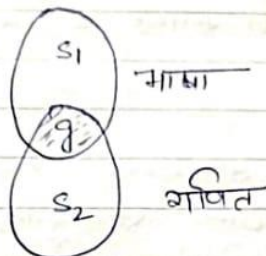 S1
भाषा
g
S2
गणित